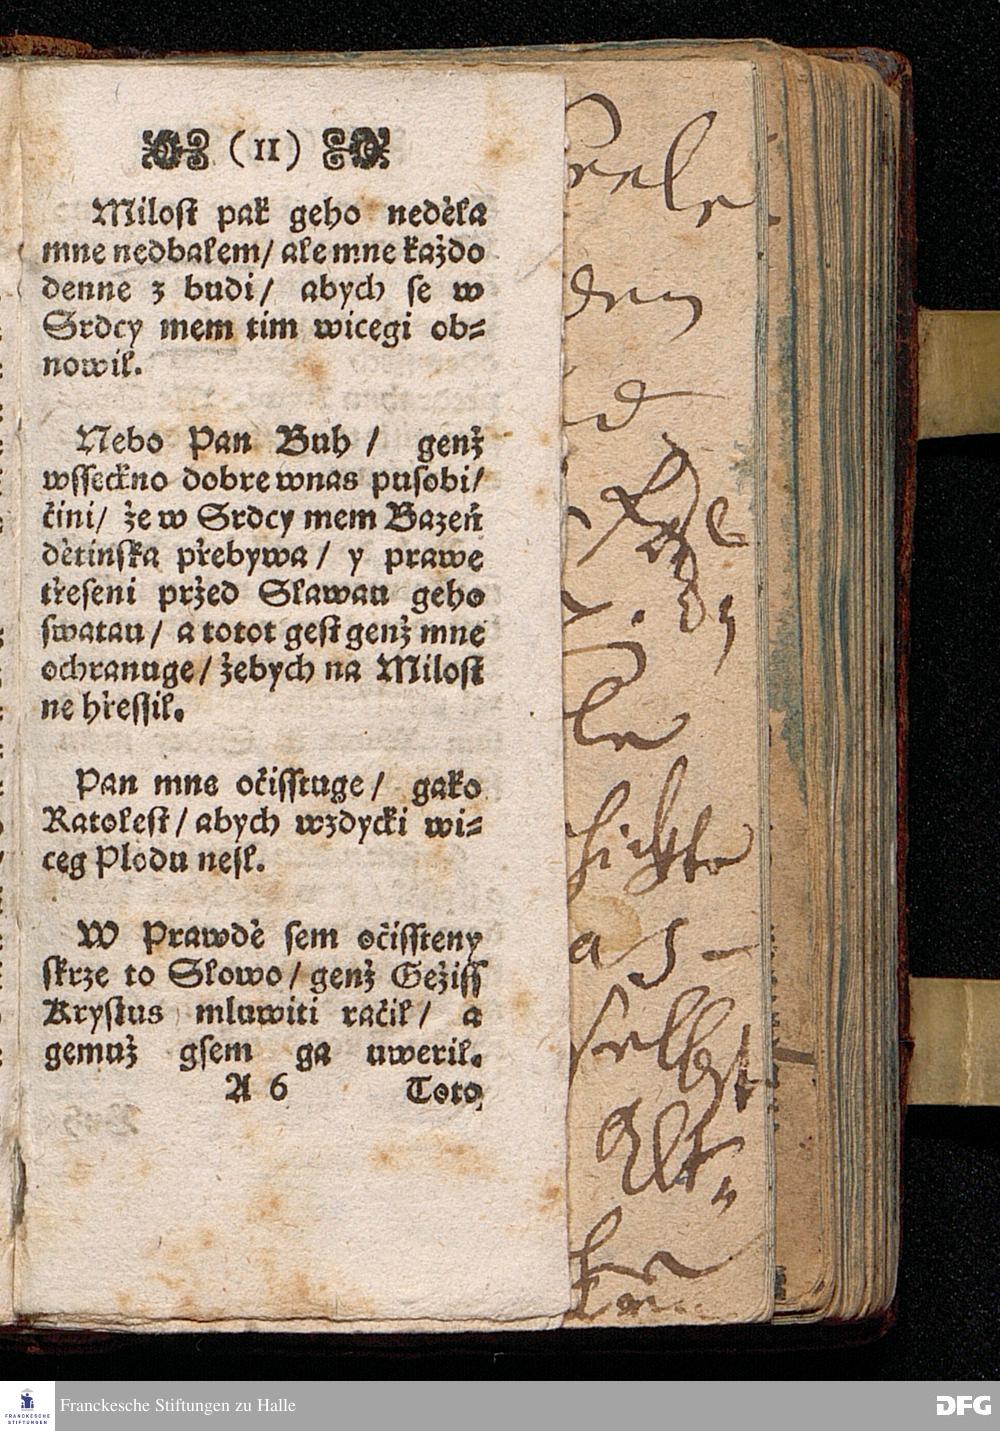 (11)
Milost pak geho nedėla
mne nedbalem/ ale mne każdo
denne z budi/ abych se w
Srdcy mem tim wicegi ob-
nowil.
Nebo Pan Buh / genż
wsseckno dobre wnas pusobi/
čini/ že w Srdcy mem Bazeń
dėtinska přebywa/ y prawe
třeseni przed Slawau geho
swatau/ a totot gest genż mne
ochranuge/ żebych na Milost
ne hřessil.
Pan mne očisstuge/ gako
Ratolest/ abych wzdycki wi-
ceg Plodu nesl.
W Prawdė sem očissteny
skrze to Slowo/ genż Gežiss
Krystus mluwiti račil/ a
gemuż gsem ga uweril.
A 6 Toto
den
le
a 5 -
selbst
Alt
Franckesche Stiftungen zu Halle
FRANCKESCHE
STIFTUNGEN
DFG